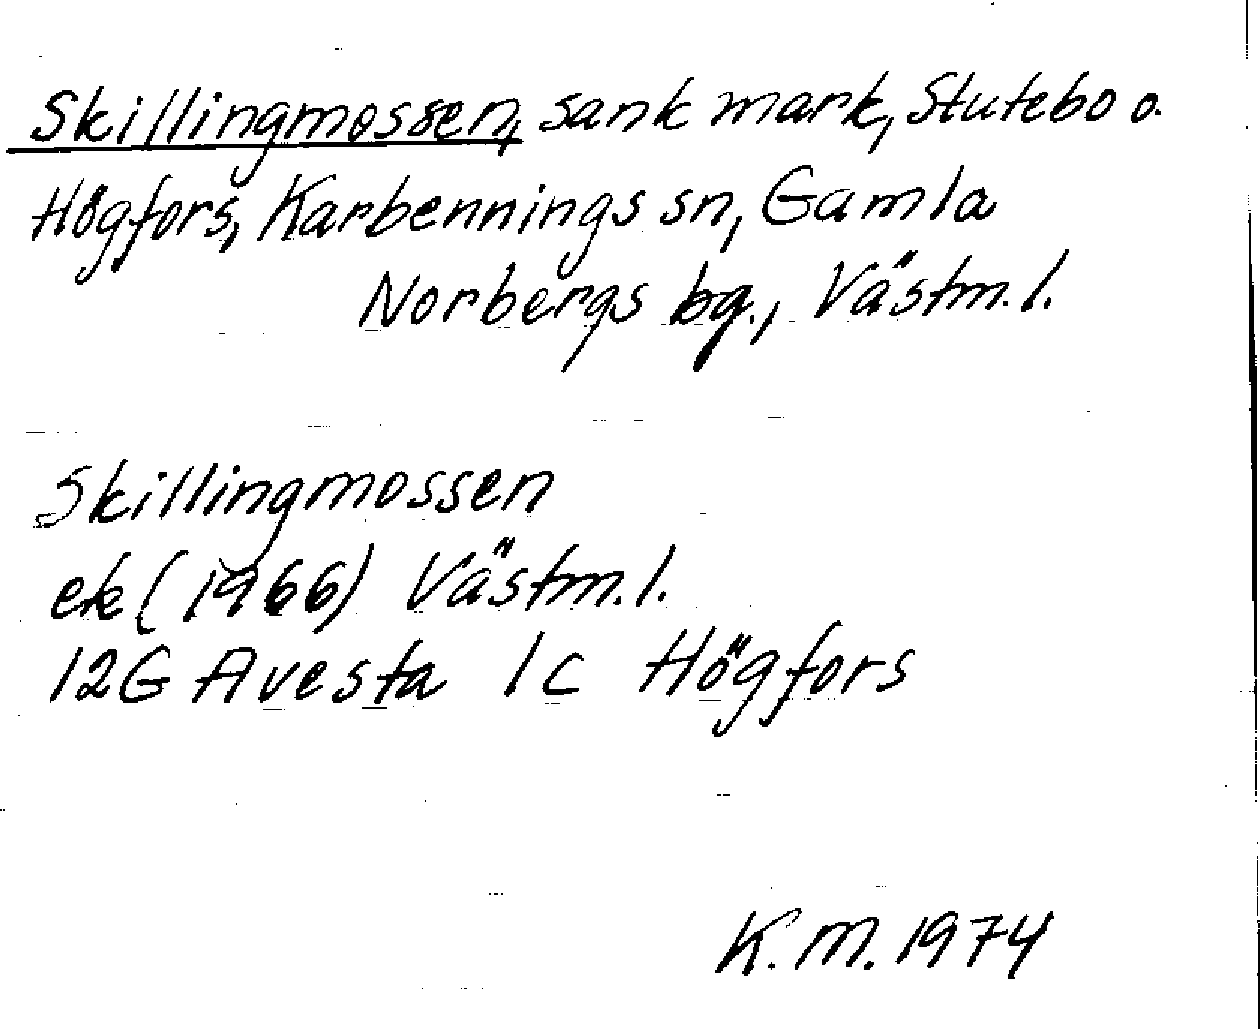 Skillingmossen, sank mark, Stutebo o.
Högfors, Karbennings sn, Gamla
Norbergs bg., Västm.l.
Skillingmossen
ek (1966) Västm.l.
12G Avesta 1c Högfors
K.M. 1974